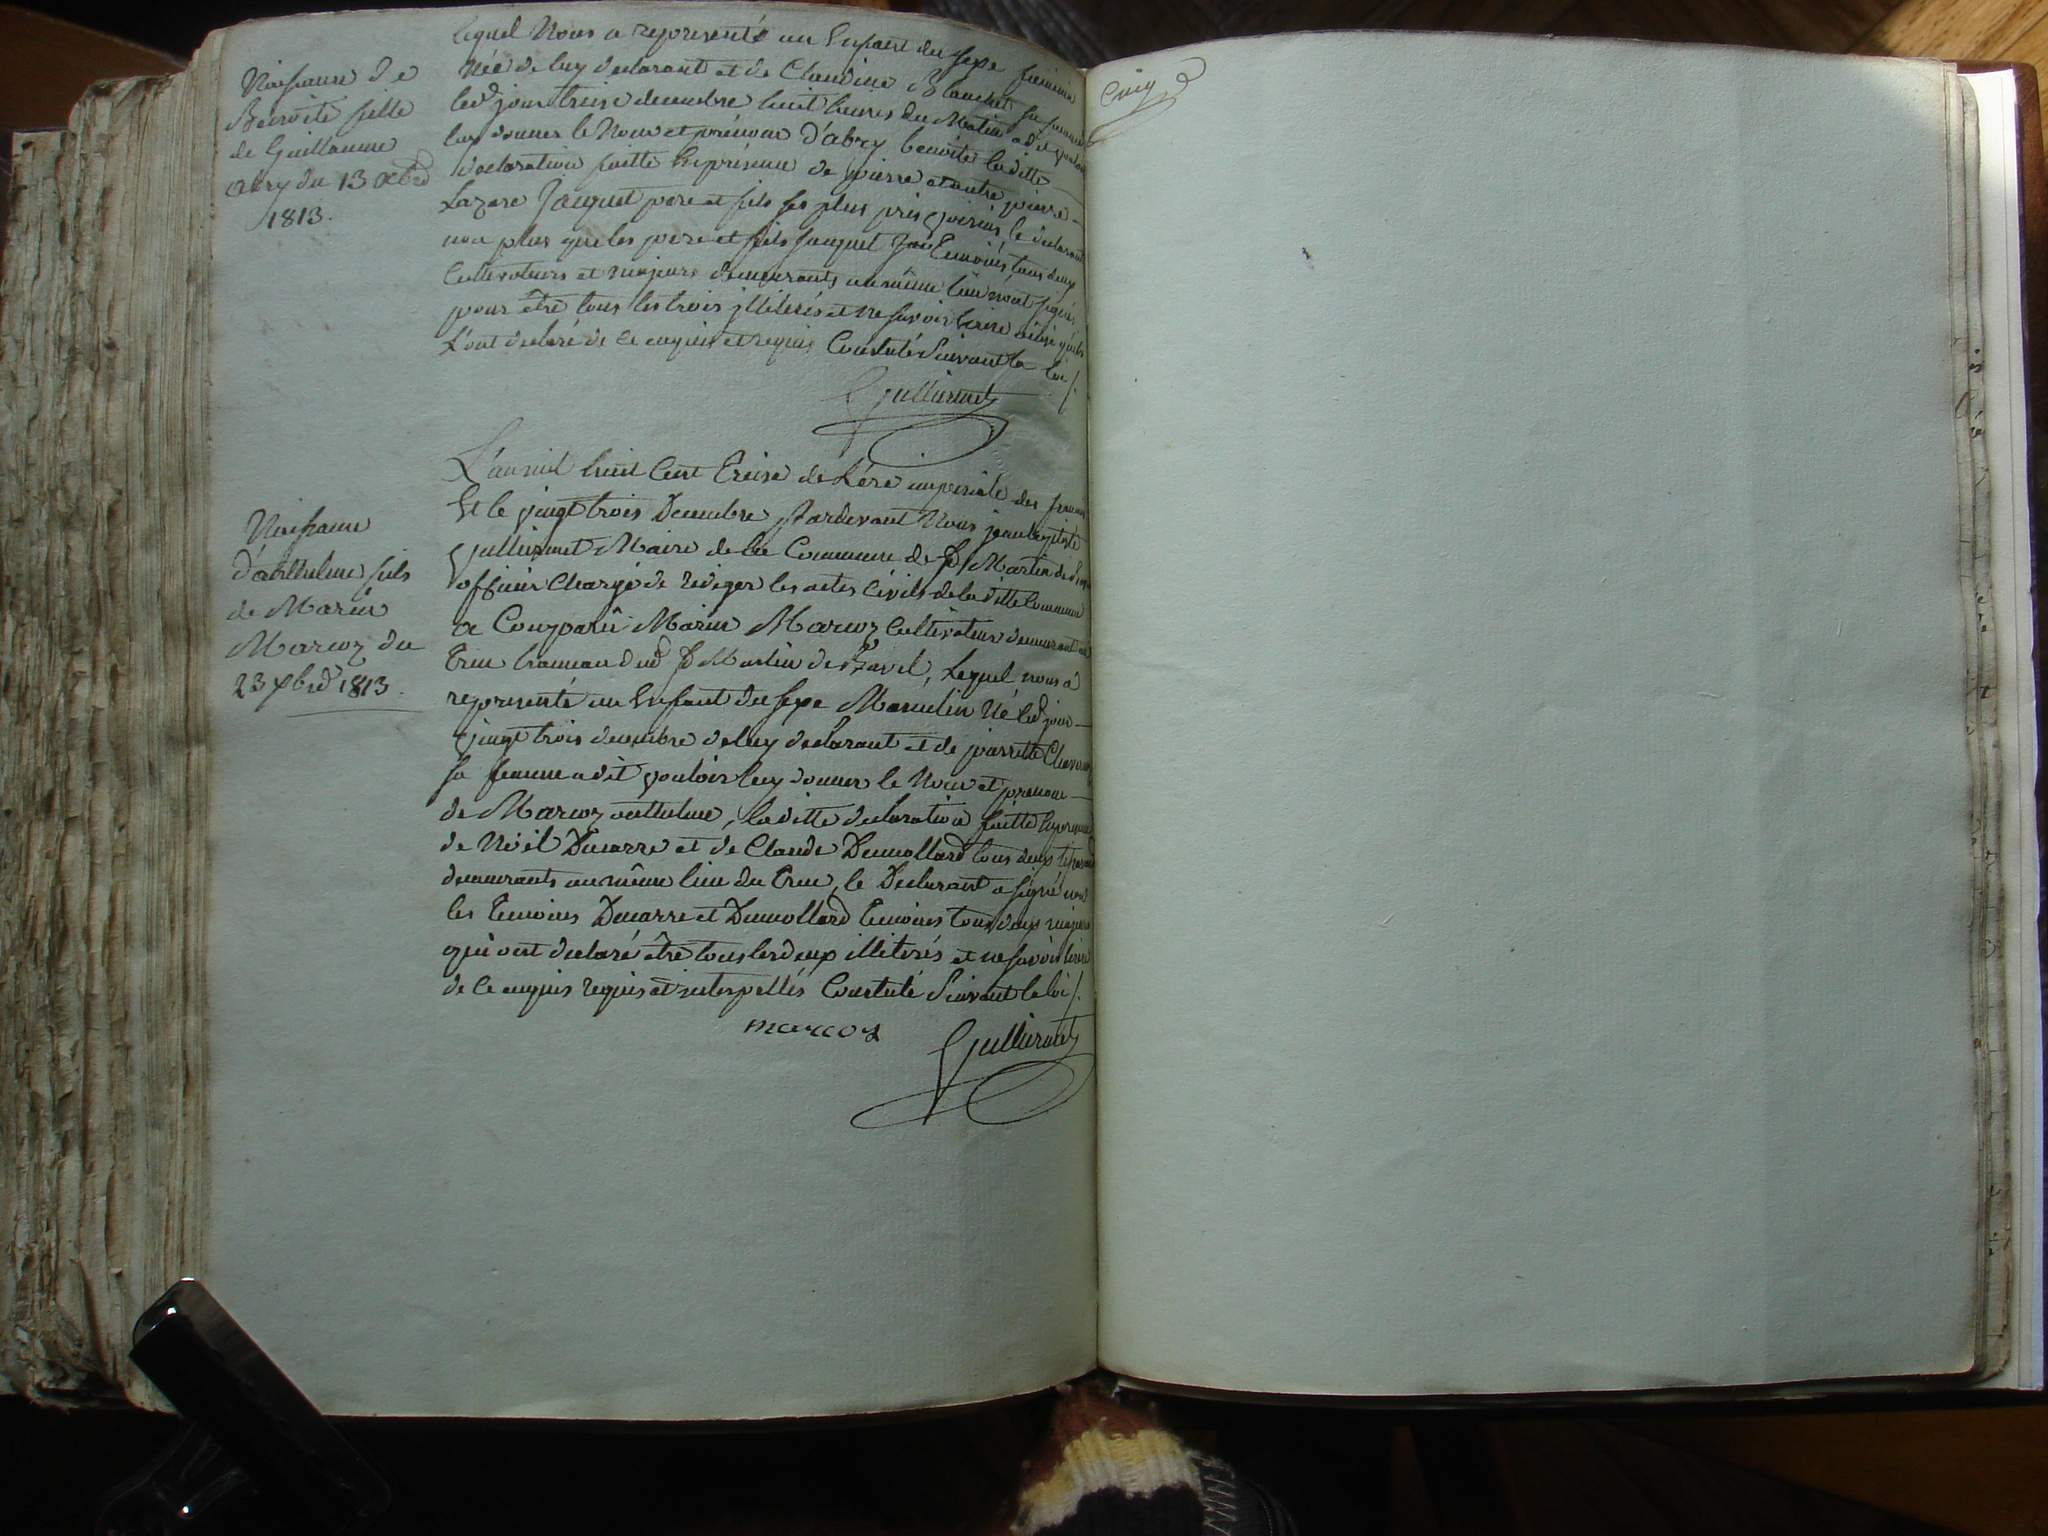 Naissance de
Benoite fille
de Guillaume
abry du 13 Xbre
1813.
lequel Nous a representé un Enfant du sexe feminin
Née de luy declarant et de Claudine Blanchet sa femme
led. jour treise decembre huit heures du Matin a dit vouloir
luy donner le Nom et prénom d'abry benoite laditte
declaration faitte En présence de pierre et autre pierre
Lazare Jauquet pere et fils ses plus près voisins, le declarant
non plus que les pere et fils Jauquet Témoins, tous deux
Cultivateurs et majeurs demeurants au même lieu n'ont signé,
pour être tous les trois illiterés et ne savoir Ecrire ainsi qu'ils
L'ont declaré de ce enquis et requis Constaté Suivant la loi /.
Gulliermet
Naissance
d'anthelme fils
de Marin
Marcoz du
23 Xbre 1813.
L'an mil huit Cent Treise de L'ére imperiale des francais
Et le vingt trois Decembre Pardevant Nous jean baptiste
Gulliermet Maire de la Commune de St Martin de
officier Chargé de rédiger les actes Civils de la ditte Commune
a Comparû Marin Marcoz Cultivateur demeurant au
Truc hameau dud. St Martin de Bavel, Lequel nous a
representé un Enfant du sexe Masculin Né led. jour
vingt trois decembre de luy declarant et de pierrette
sa femme a dit vouloir luy donner le Nom et prenom
de Marcoz anthelme, la ditte declaration faitte En presence
de Noël Ducarre et de Claude Demollard tous deux
demeurants au même lieu du Truc, le Declarant a signé non
les Temoins Ducarre et Demollard Temoins tous deux majeurs
qui ont declaré être tous les deux illiterés et ne savoir Ecrire
de ce enquis requis et interpellés Constaté Suivant la loi /.
marcoz
Gulliermet
Cinq